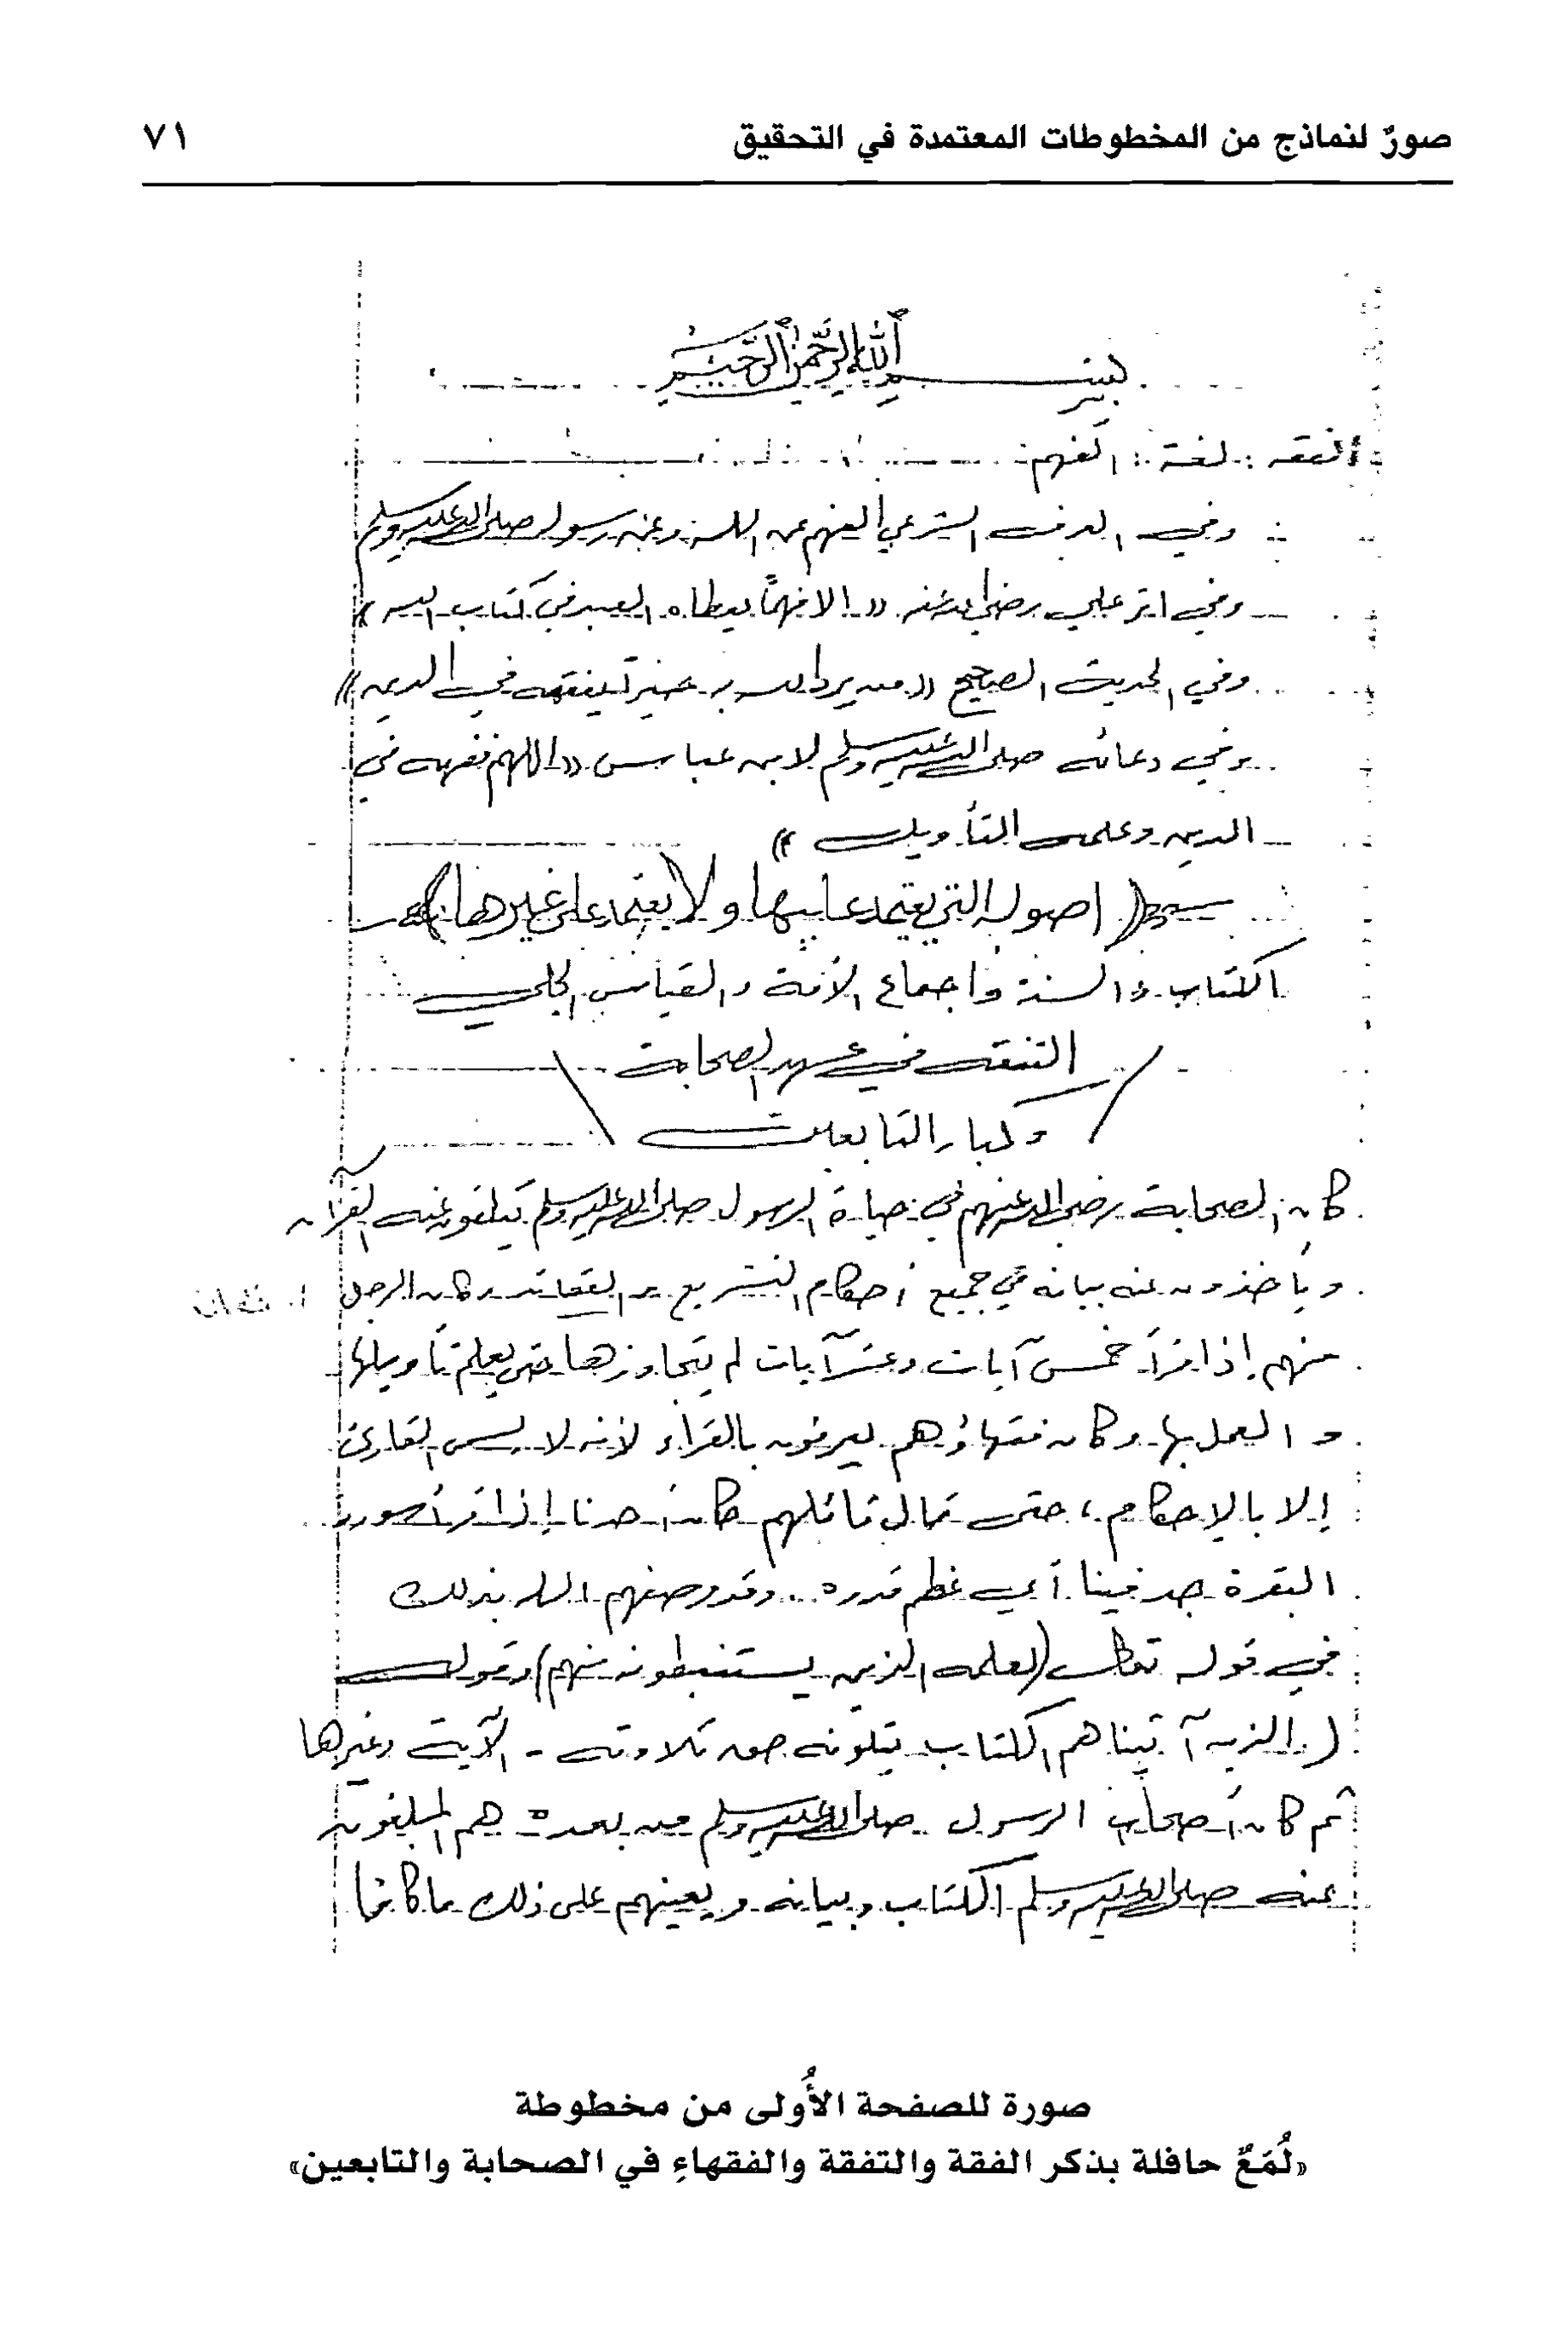 صورٌ لنماذج من المخطوطات المعتمدة في التحقيق
٧١
بسم الله الرحمن الرحيم
الفقه : لغة : الفهم
وفي العرف الشرعي الفهم عن الله وعن رسوله صلى الله عليه وسلم
وفي اثر علي رضي الله عنه « إلا فهماً يعطاه العبد في كتاب الله »
وفي الحديث الصحيح « من يرد الله به خيراً يفقهه في الدين »
وفي دعائه صلى الله عليه وسلم لابن عباس « اللهم فقهه في
الدين وعلمه التأويل »
( اصوله التي يعتمد عليها ولا يعتمد على غيرها )
الكتاب والسنة واجماع الأمة والقياس الجلي
التفقه في عهد الصحابة
وكبار التابعين
كان الصحابة رضي الله عنهم في حياة الرسول صلى الله عليه وسلم يتلقون عنه القرآن
ويأخذون عنه بيانه في جميع أحكام التشريع والعقائد وكان الرجل
منهم إذا قرأ خمس آيات وعشر آيات لم يتجاوزها حتى يعلم تأويلها
والعمل بها وكان فقهاؤهم يعرفون بالقراء لأنه لا يسمى القارئ
إلا بالإحكام ، حتى قال قائلهم كان أحدنا إذا قرأ سورة
البقرة جد فينا أي عظم قدره .. وقد وصفهم الله بذلك
في قوله تعالى (لعلمه الذين يستنبطونه منهم) وقوله
( الذين آتيناهم الكتاب يتلونه حق تلاوته - الآية وغيرها
ثم كان أصحاب الرسول صلى الله عليه وسلم من بعده هم المبلغون
عنه صلى الله عليه وسلم الكتاب وبيانه ويعينهم على ذلك ما كانوا
صورة للصفحة الأُولى من مخطوطة
«لُمَعٌ حافلة بذكر الفقة والتفقة والفقهاءِ في الصحابة والتابعين»